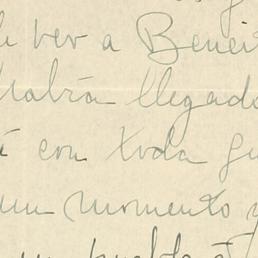 ver a Benei
Habrá llegado
con toda gu
un momento y